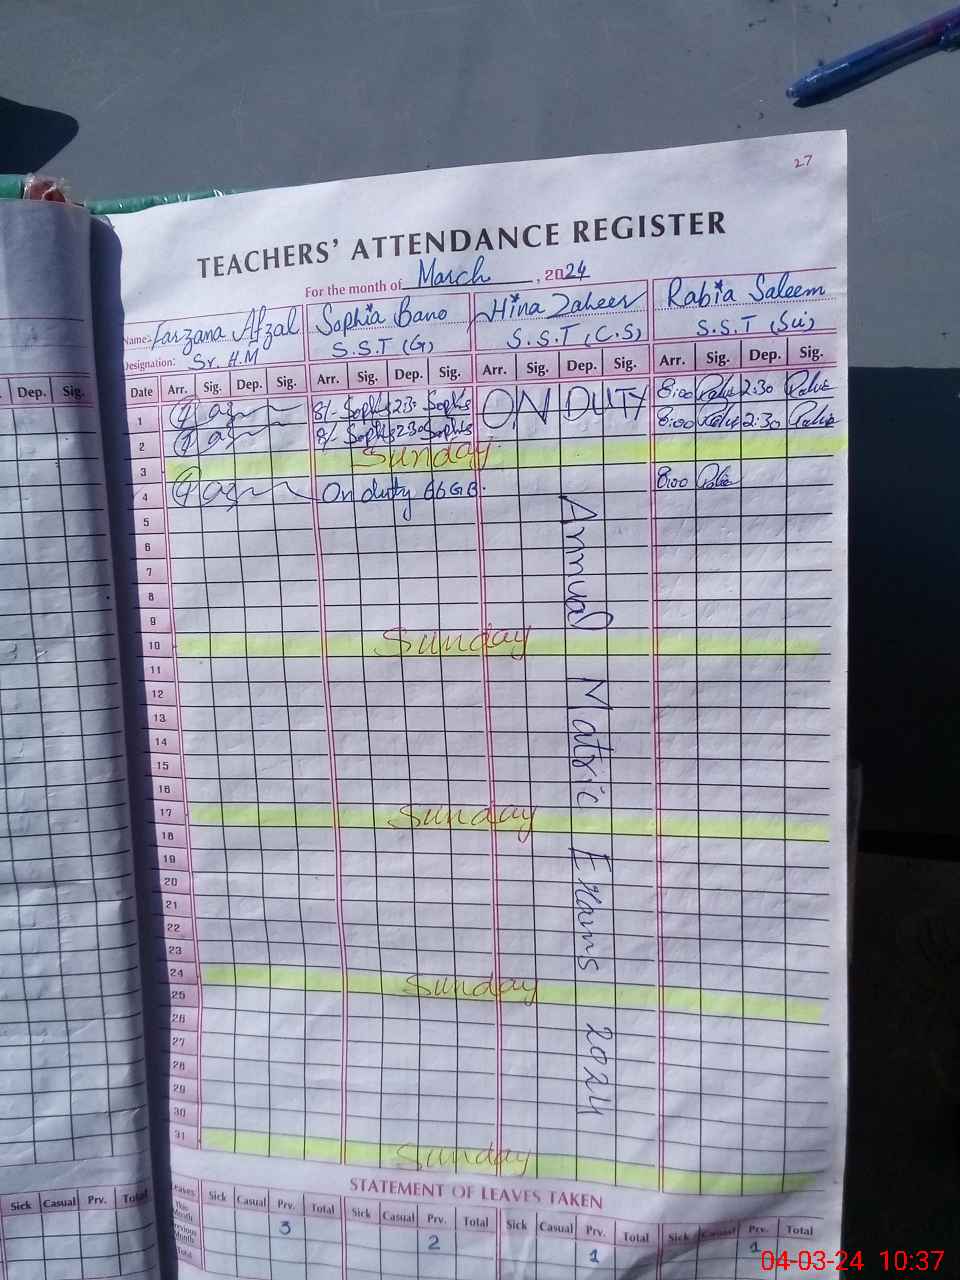 27
TEACHERS' ATTENDANCE REGISTER
For the month of March, 2024
Name: Farzana Afzal Sophia Bano Hina Zaheer Rabia Saleem
Designation: Sr. H.M S.S.T (G) S.S.T (C.S) S.S.T (Sci)
Dep. Sig. Date Arr. Sig. Dep. Sig. Arr. Sig. Dep. Sig. Arr. Sig. Dep. Sig. Arr. Sig. Dep. Sig.
1 8/- Sophia 2:30 Sophia ON DUTY 8:00 Rabia 2:30 Rabia
2 8/- Sophia 2:30 Sophia 8:00 Rabia 2:30 Rabia
3 Sunday
4 On duty 66 GB. 8:00 Rabia
Annual Matric Exams 2024
5
6
7
8
9
10 Sunday
11
12
13
14
15
16
17 Sunday
18
19
20
21
22
23
24 Sunday
25
26
27
28
29
30
31 Sunday
STATEMENT OF LEAVES TAKEN
Sick Casual Prv. Total Leaves Sick Casual Prv. Total Sick Casual Prv. Total Sick Casual Prv. Total Sick Casual Prv. Total
This Month 3 2 1 1
Previous Month
Total
04-03-24 10:37